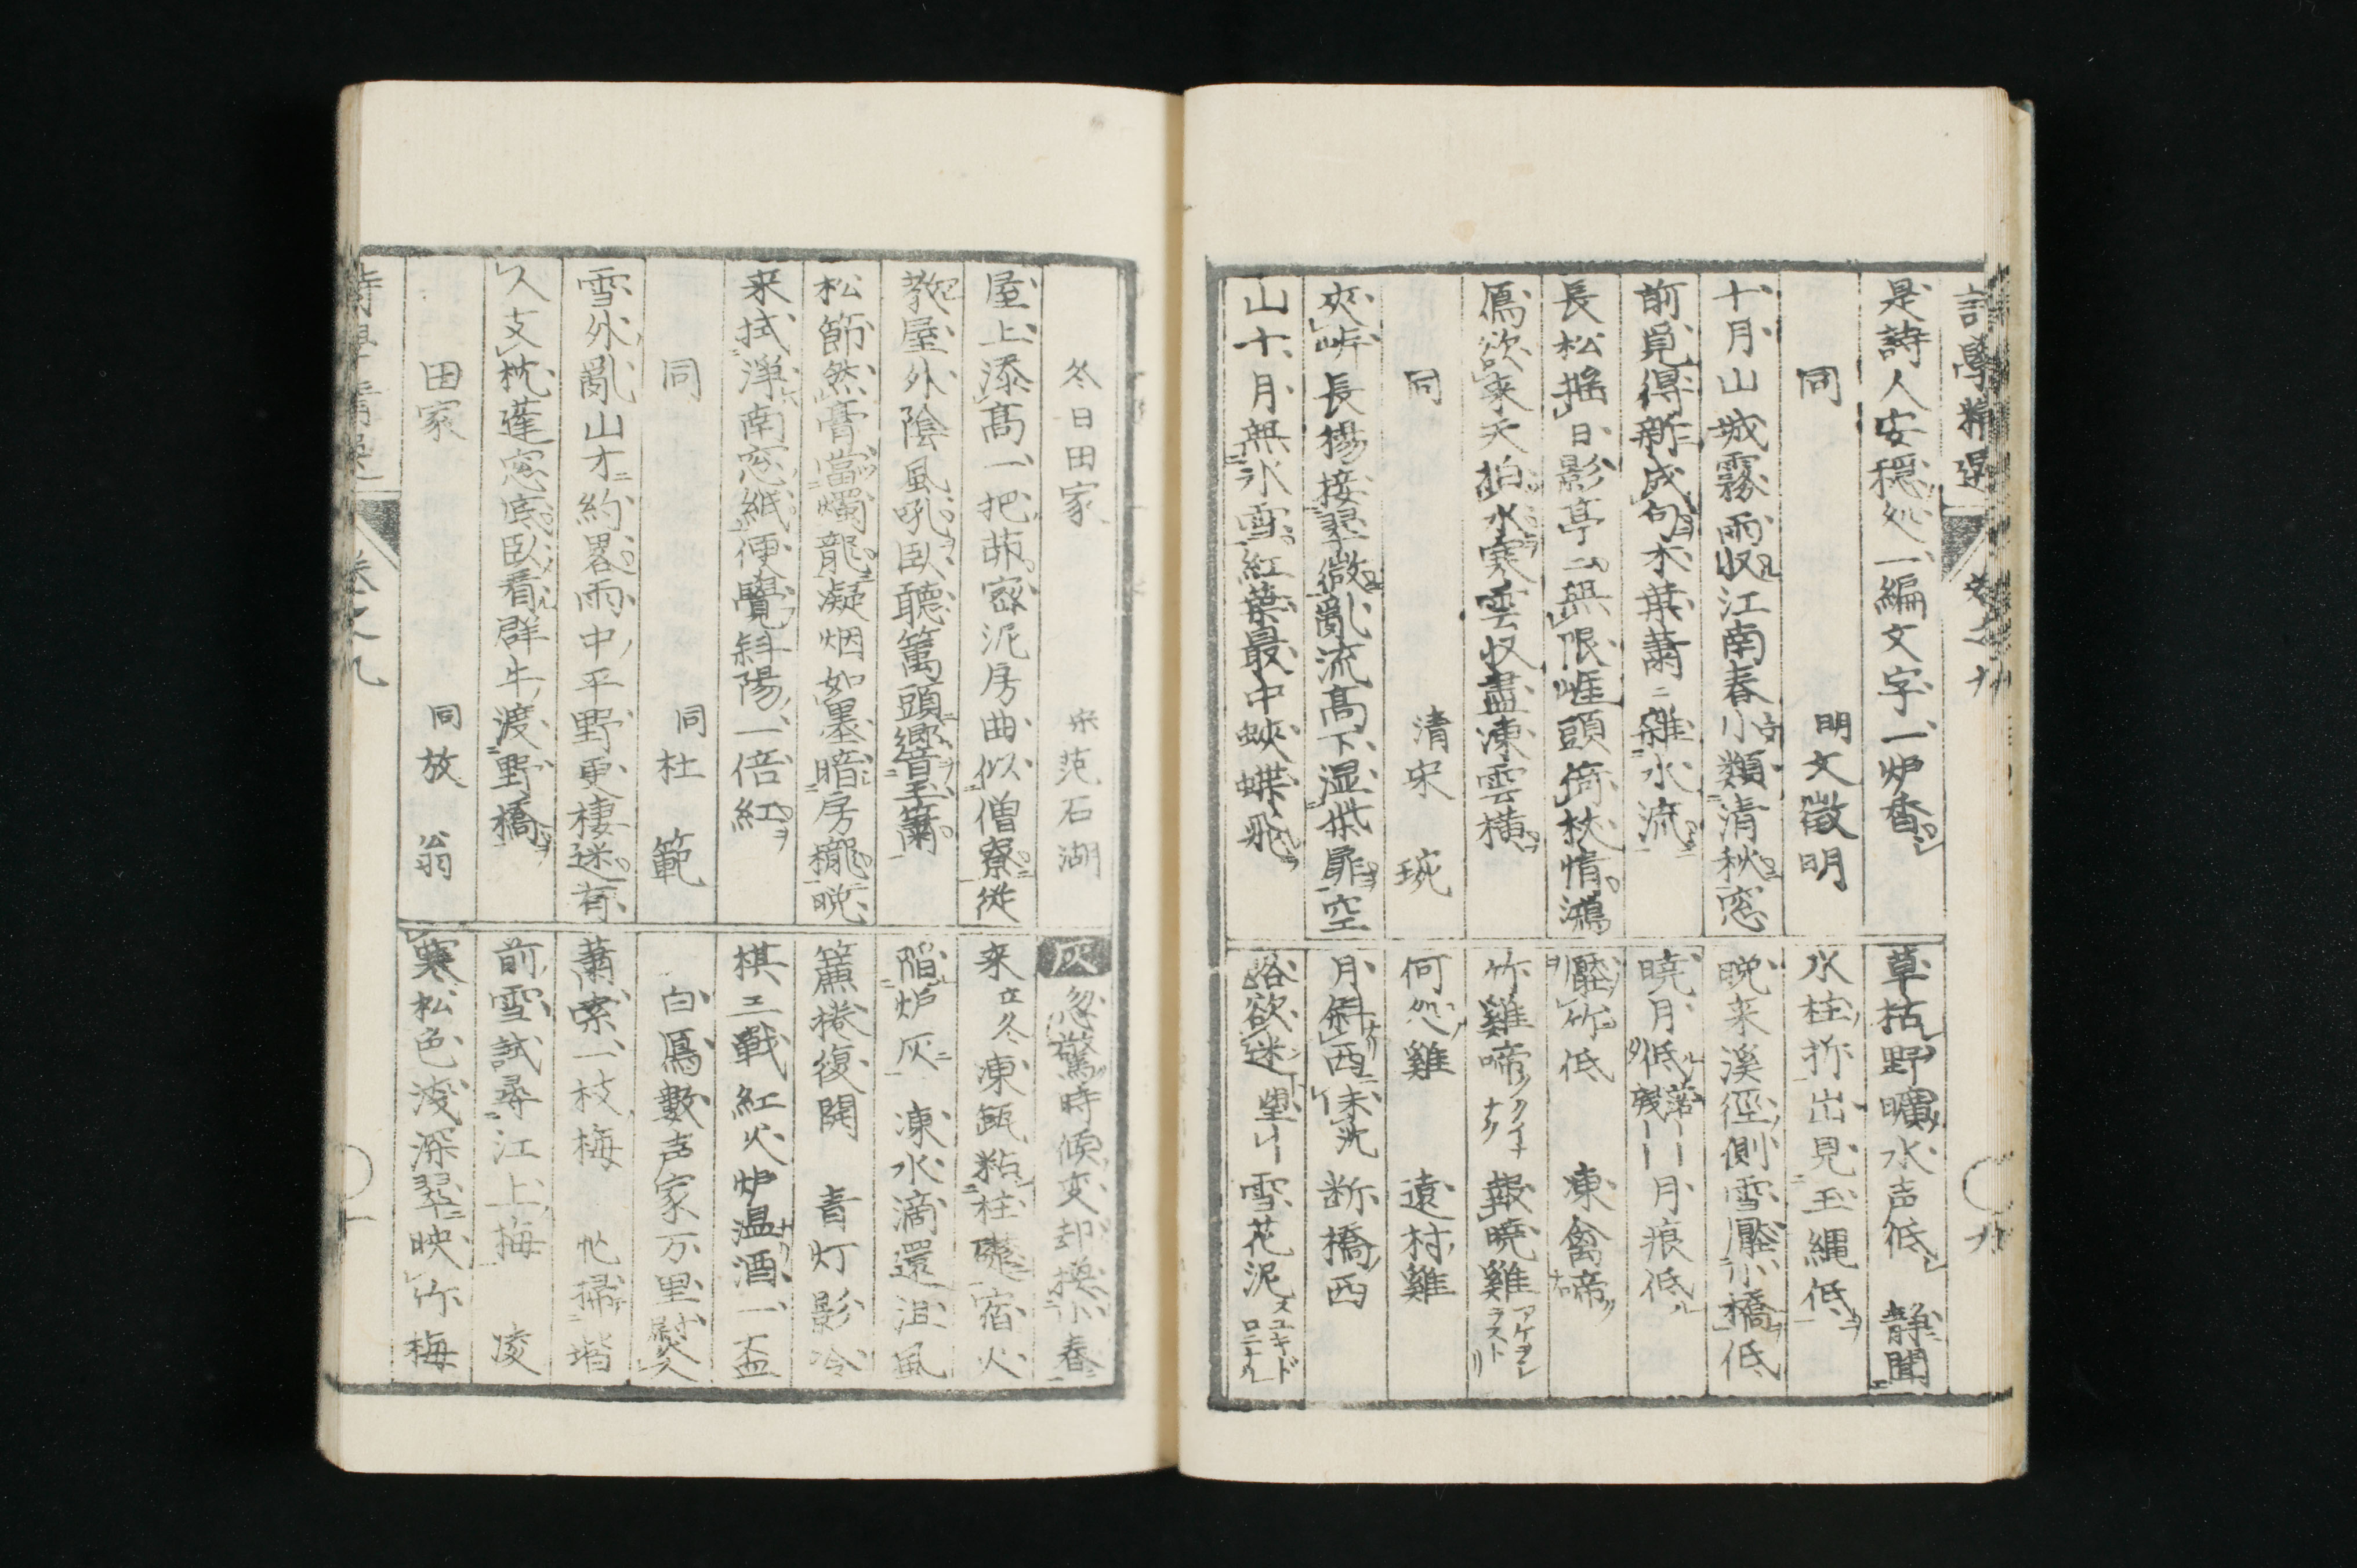 詩學精選
是詩人安穏処一編文字一炉香
同 明文徴明
十月山城霧雨収江南春小類清秋窓
前覓得新成句木葉蕭〻雑水流
長松揺日影亭〻無限崕頭倚杖情鴻
鳫欲来天拍水寒雲収盡凍雲横
同 清宋琬
夾岸長楊接翠微亂流高下湿柴扉空
山十月無氷雪紅葉最中蛺蝶飛
草枯野曠水声低 静聞
水柱拆出見玉縄低
晩来溪徑側雪壓小橋低
暁月低 残 月痕低
壓竹低 凍禽啼
竹雞啼 報暁雞
何処雞 遠村雞
月斜西 未洗 断橋西
路欲迷 雪花泥
冬日田家 宋范石湖
屋上添高一把茆密泥房曲似僧寮従
教屋外陰風吼臥聴篱頭響玉簫
松節然膏當燭龍凝烟如墨暗房櫳晩
来拭浄南窓紙便覺斜陽一倍紅
同 同杜範
雪外亂山才約畧雨中平野更棲迷有
人支枕蓬窓底臥看群牛渡野橋
田家 同放翁
灰 忽驚時候変却換小春
来立冬凍瓶粘柱礎宿火
陥炉灰 凍水滴還沮風
簾捲復開 青灯影冷
棋三戦紅火炉温酒一盃
白鳫數声家万里
蕭索一枝梅 忙掃堦
前雪試尋江上梅 凌
寒松色浅深翠映竹梅
詩學精選 巻之九